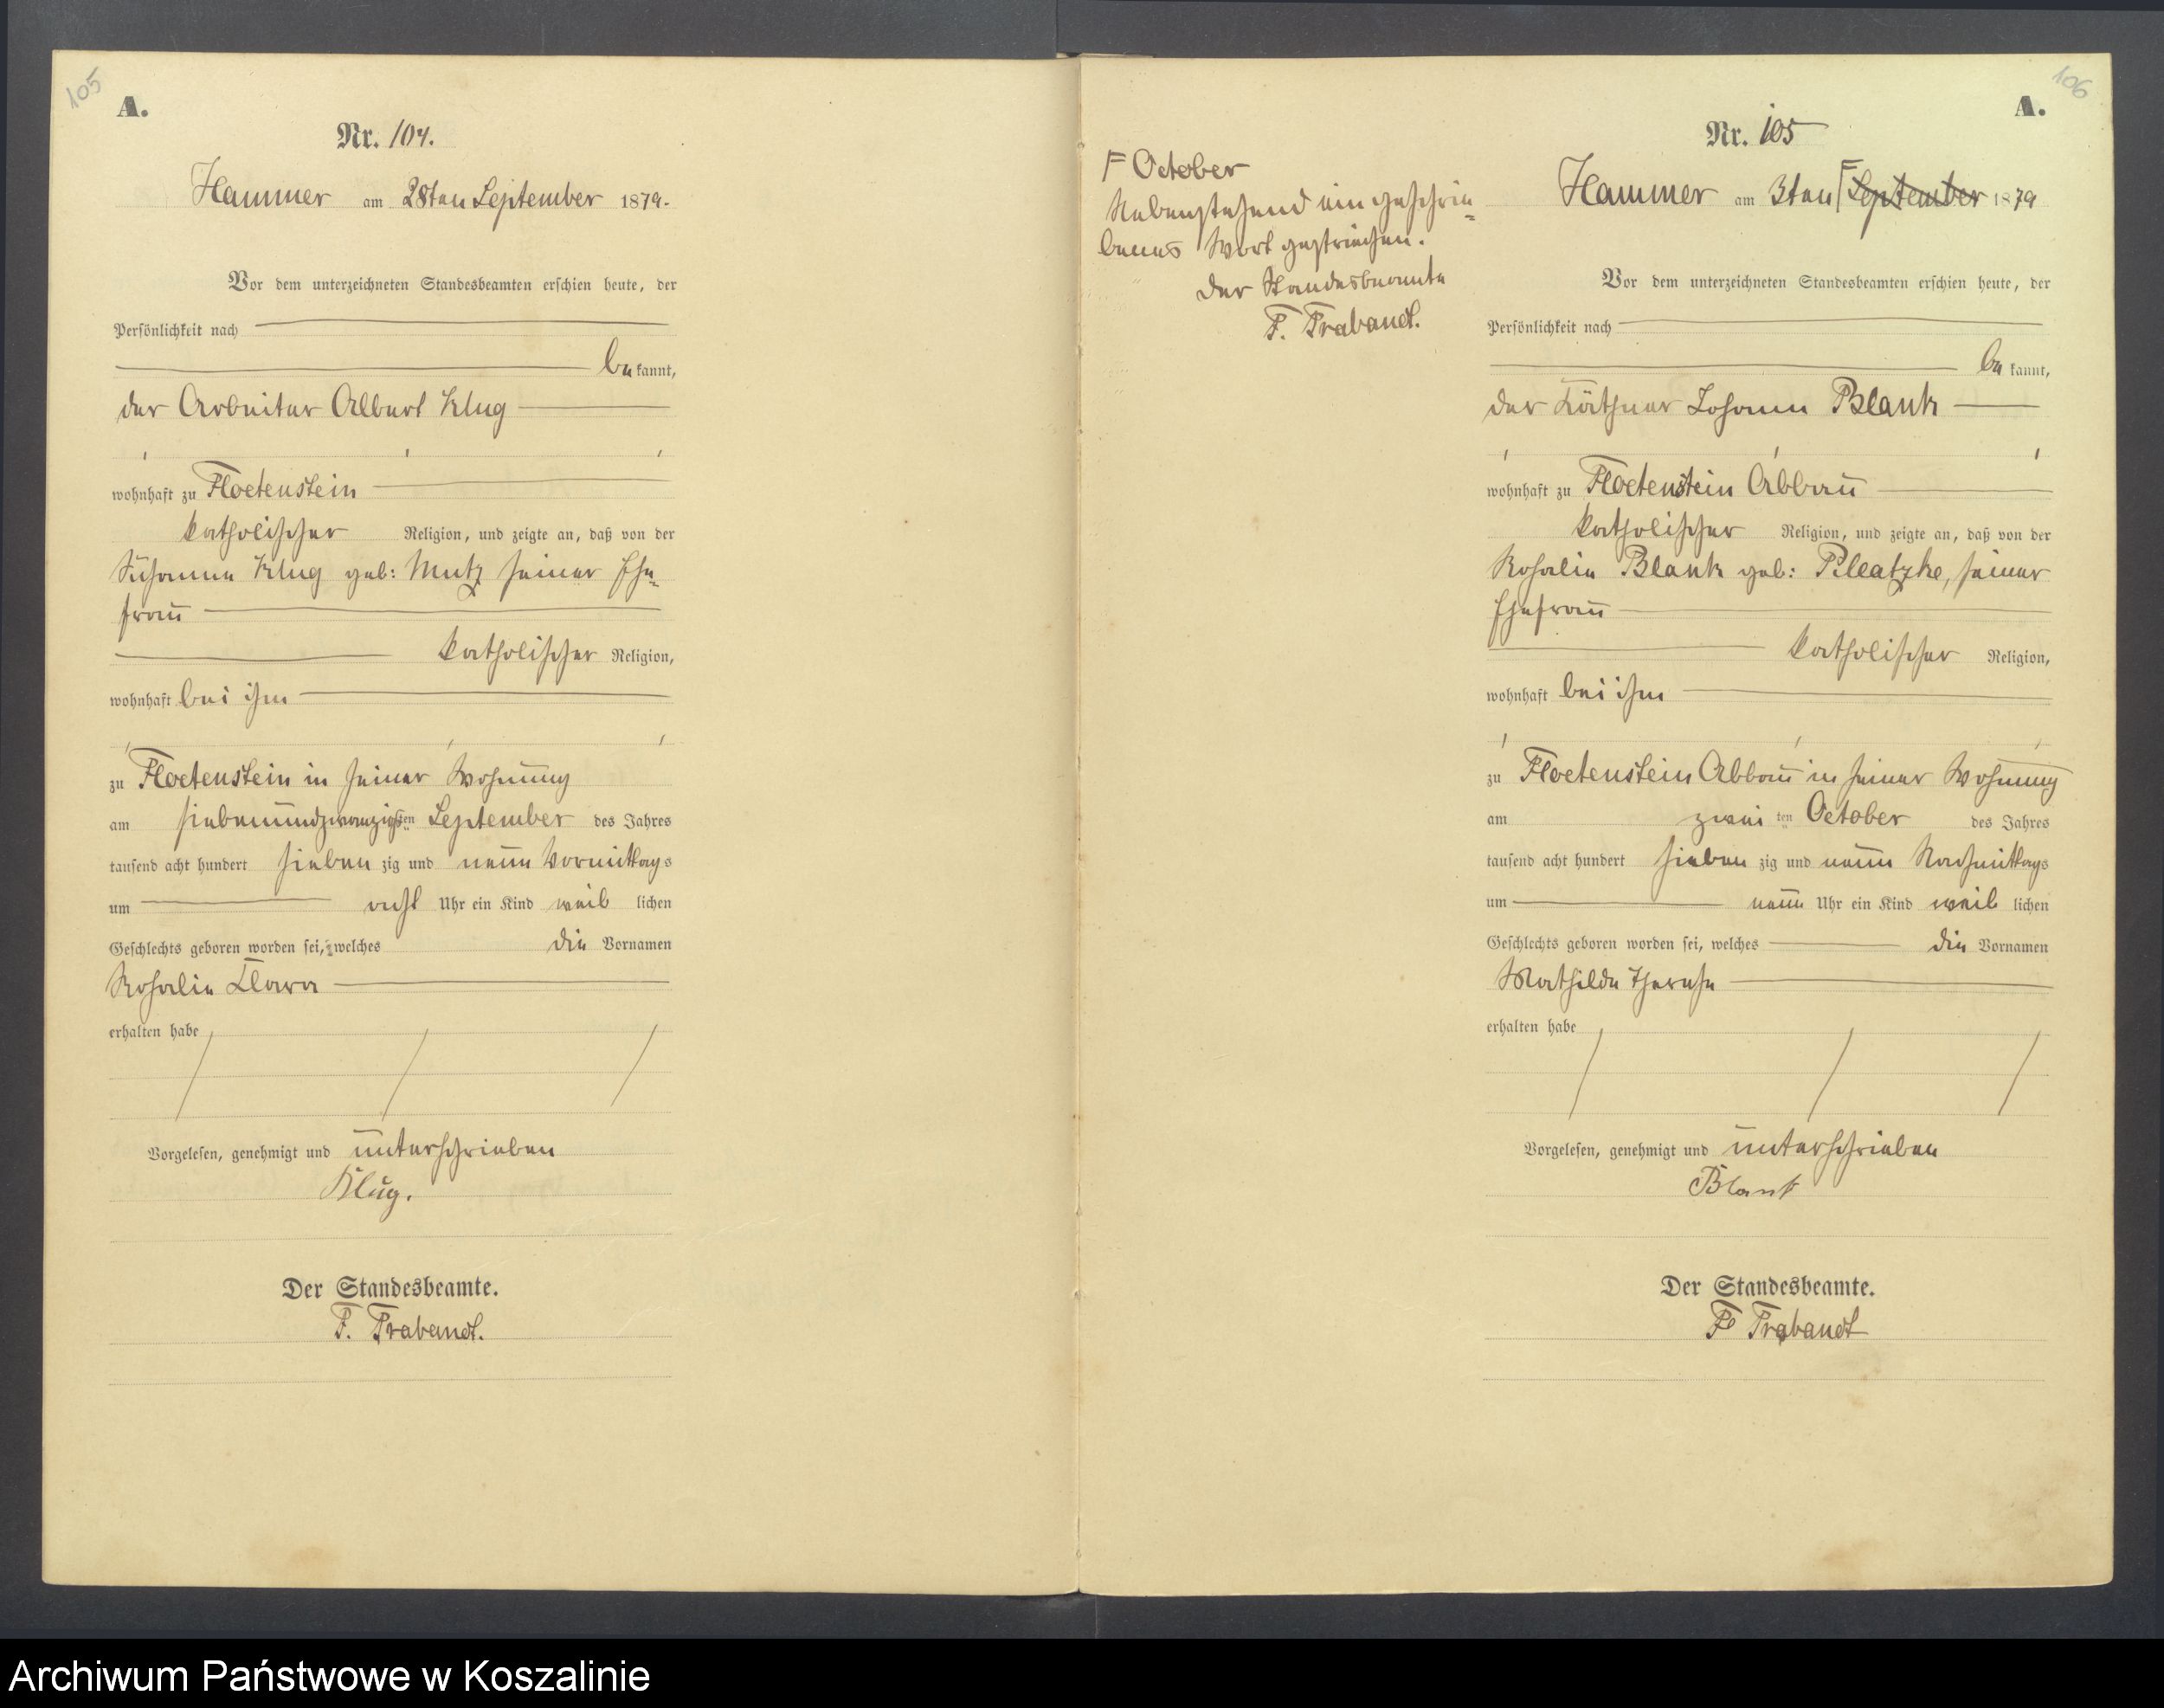 105
A.
Nr. 104.
Hammer am 28ten September 1879.
Vor dem unterzeichneten Standesbeamten erschien heute, der
Persönlichkeit nach
be kannt,
der Arbeiter Albert Klug
wohnhaft zu Floetenstein
katholischer Religion, und zeigte an, daß von der
Susanne Klug geb: Mutz seiner Ehe-
frau
katholischer Religion,
wohnhaft bei ihm
zu Floetenstein in seiner Wohnung
am siebenundzwanzigsten September des Jahres
tausend acht hundert sieben zig und neun Vormittags
um acht Uhr ein Kind weib lichen
Geschlechts geboren worden sei, welches die Vornamen
Rosalie Clara
erhalten habe
Vorgelesen, genehmigt und unterschrieben
Klug.
Der Standesbeamte.
F. Trabandt.
F October
Nebenstehend eingeschrie-
benes Wort gestrichen.
Der Standesbeamte
F. Trabandt.
106
A.
Nr. 105
Hammer am 3ten F September 1879
Vor dem unterzeichneten Standesbeamten erschien heute, der
Persönlichkeit nach
be kannt,
der Käthner Johann Blank
wohnhaft zu Floetenstein Abbau
katholischer Religion, und zeigte an, daß von der
Rosalie Blank geb: Pleatzke, seiner
Ehefrau
katholischer Religion,
wohnhaft bei ihm
zu Floetenstein Abbau in seiner Wohnung
am zwei ten October des Jahres
tausend acht hundert sieben zig und neun Nachmittags
um neun Uhr ein Kind weib lichen
Geschlechts geboren worden sei, welches die Vornamen
Mathilde Therese
erhalten habe
Vorgelesen, genehmigt und unterschrieben
Blank
Der Standesbeamte.
F Trabandt
Archiwum Państwowe w Koszalinie